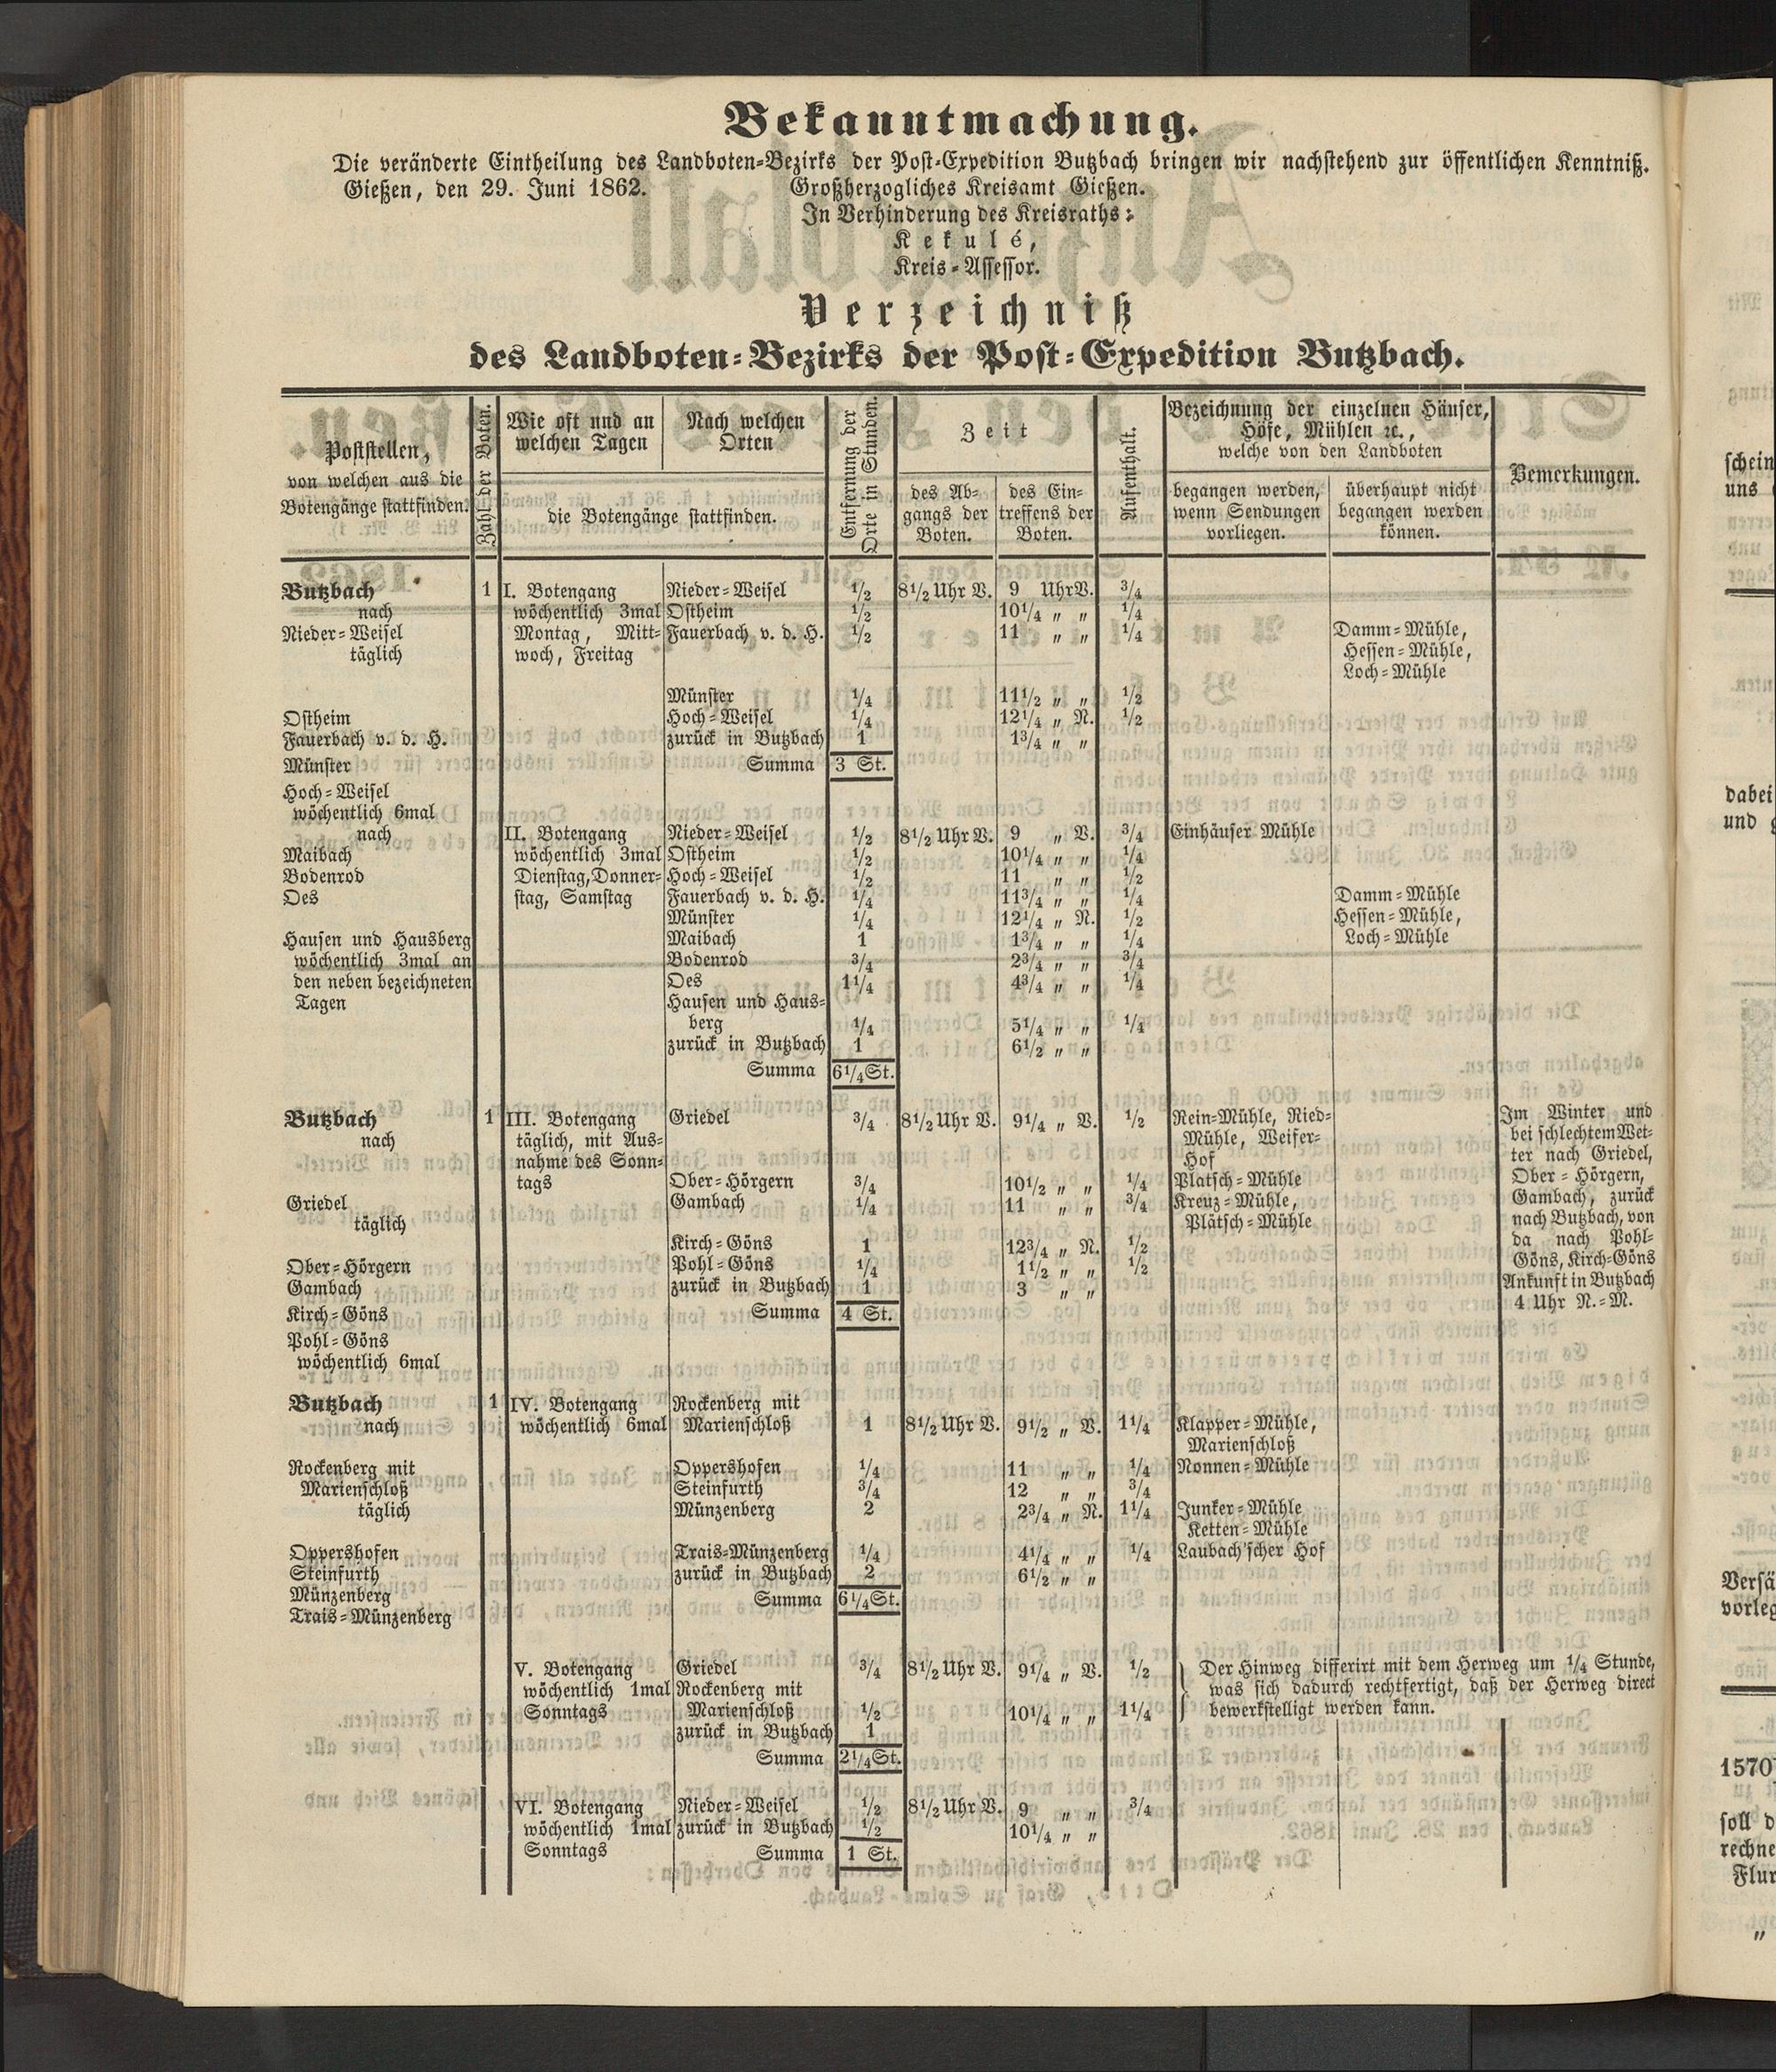 Bekanntmachung.
Die veränderte Eintheilung des Landboten-Bezirks der Post-Expedition Butzbach bringen wir nachstehend zur öffentlichen Kenntniß.
Gießen, den 29. Juni 1862. Großherzogliches Kreisamt Gießen.
In Verhinderung des Kreisraths:
Kekulé,
Kreis-Assessor.
Verzeichniß
des Landboten-Bezirks der Post-Expedition Butzbach.
Poststellen,
von welchen aus die
Botengänge stattfinden.
Zahl der Boten.
Wie oft und an
welchen Tagen
Nach welchen
Orten
die Botengänge stattfinden.
Entfernung der
Orte in Stunden.
Zeit
des Ab-
gangs der
Boten.
des Ein-
treffens der
Boten.
Aufenthalt.
Bezeichnung der einzelnen Häuser,
Höfe, Mühlen ꝛc.,
welche von den Landboten
begangen werden,
wenn Sendungen
vorliegen.
überhaupt nicht
begangen werden
können.
Bemerkungen.
Butzbach 1 I. Botengang Nieder-Weisel 1/2 8 1/2 Uhr V. 9 Uhr V. 3/4
nach wöchentlich 3mal Ostheim 1/2 10 1/4 „ „ 1/4
Nieder-Weisel Montag, Mitt- Fauerbach v. d. H. 1/2 11 „ „ 1/4 Damm-Mühle,
täglich woch, Freitag Hessen-Mühle,
Loch-Mühle
Münster 1/4 11 1/2 „ „ 1/2
Ostheim Hoch-Weisel 1/4 12 1/4 „ N. 1/2
Fauerbach v. d. H. zurück in Butzbach 1 1 3/4 „ „
Münster Summa 3 St.
Hoch-Weisel
wöchentlich 6mal
nach II. Botengang Nieder-Weisel 1/2 8 1/2 Uhr V. 9 „ V. 3/4 Einhäuser Mühle
Maibach wöchentlich 3mal Ostheim 1/2 10 1/4 „ „ 1/4
Bodenrod Dienstag, Donner- Hoch-Weisel 1/2 11 „ „ 1/2
Oes stag, Samstag Fauerbach v. d. H. 1/4 11 3/4 „ „ 1/4 Damm-Mühle
Münster 1/4 12 1/4 „ N. 1/2 Hessen-Mühle,
Hausen und Hausberg Maibach 1 1 3/4 „ „ 1/4 Loch-Mühle
wöchentlich 3mal an Bodenrod 3/4 2 3/4 „ „ 3/4
den neben bezeichneten Oes 1 1/4 4 3/4 „ „ 1/4
Tagen Hausen und Haus-
berg 1/4 5 1/4 „ „ 1/4
zurück in Butzbach 1 6 1/2 „ „
Summa 6 1/4 St.
Butzbach 1 III. Botengang Griedel 3/4 8 1/2 Uhr V. 9 1/4 „ V. 1/2 Rein-Mühle, Ried- Im Winter und
nach täglich, mit Aus- Mühle, Weiser- bei schlechtem Wet-
nahme des Sonn- Hof ter nach Griedel,
tags Ober-Hörgern 3/4 10 1/2 „ „ 1/4 Platsch-Mühle Ober-Hörgern,
Griedel Gambach 1/4 11 „ „ 3/4 Kreuz-Mühle, Gambach, zurück
täglich Plätsch-Mühle nach Butzbach, von
Kirch-Göns 1 12 3/4 „ N. 1/2 da nach Pohl-
Ober-Hörgern Pohl-Göns 1/4 1 1/2 „ „ 1/2 Göns, Kirch-Göns
Gambach zurück in Butzbach 1 3 „ „ Ankunft in Butzbach
Kirch-Göns Summa 4 St. 4 Uhr N.-M.
Pohl-Göns
wöchentlich 6mal
Butzbach 1 IV. Botengang Rockenberg mit
nach wöchentlich 6mal Marienschloß 1 8 1/2 Uhr V. 9 1/2 „ V. 1 1/4 Klapper-Mühle,
Marienschloß
Rockenberg mit Oppershofen 1/4 11 „ „ 1/4 Nonnen-Mühle
Marienschloß Steinfurth 3/4 12 „ „ 3/4
täglich Münzenberg 2 2 3/4 „ N. 1 1/4 Junker-Mühle
Ketten-Mühle
Oppershofen Trais-Münzenberg 1/4 4 1/4 „ „ 1/4 Laubach'scher Hof
Steinfurth zurück in Butzbach 2 6 1/2 „ „
Münzenberg Summa 6 1/4 St.
Trais-Münzenberg
V. Botengang Griedel 3/4 8 1/2 Uhr V. 9 1/4 „ V. 1/2 Der Hinweg differirt mit dem Herweg um 1/4 Stunde,
wöchentlich 1mal Rockenberg mit was sich dadurch rechtfertigt, daß der Herweg direct
Sonntags Marienschloß 1/2 10 1/4 „ „ 1 1/4 bewerkstelligt werden kann.
zurück in Butzbach 1
Summa 2 1/4 St.
VI. Botengang Nieder-Weisel 1/2 8 1/2 Uhr V. 9 „ „ 3/4
wöchentlich 1mal zurück in Butzbach 1/2 10 1/4 „ „
Sonntags Summa 1 St.
schein
uns
dabei
und
Versä
vorleg
1570
soll d
rechne
Flur
„